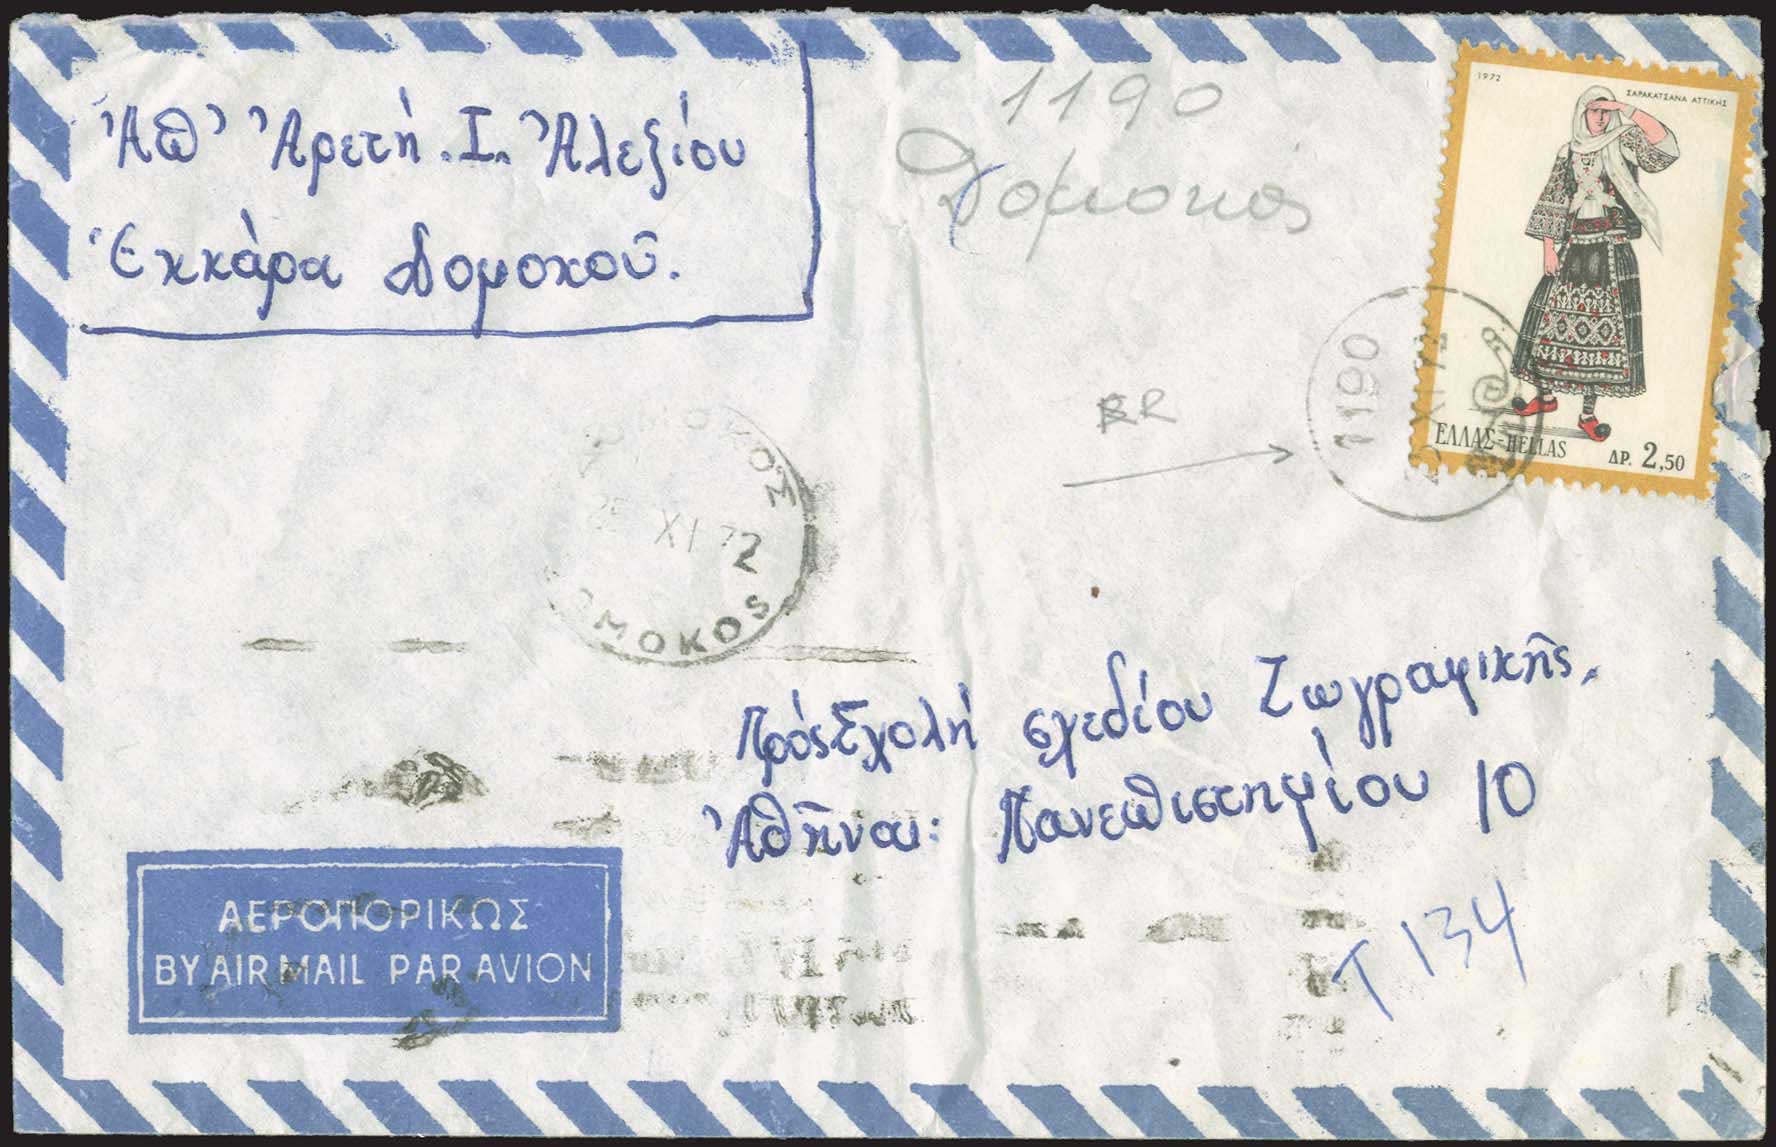 Ἀπ' Ἀρετή. Ι. Ἀλεξίου
Ἐκκάρα Δομοκοῦ.
1190
Δομοκός
1972
ΣΑΡΑΚΑΤΣΑΝΑ ΑΤΤΙΚΗΣ
ΕΛΛΑΣ-HELLAS
ΔΡ. 2,50
1190
XI 72
R
ΜΟΚΟΣ
25 XI 72
OMOKOS
Πρός Σχολή σχεδίου Ζωγραφικῆς.
Ἀθῆναι: Πανεπιστημίου 10
T 134
ΑΕΡΟΠΟΡΙΚΩΣ
BY AIR MAIL PAR AVION